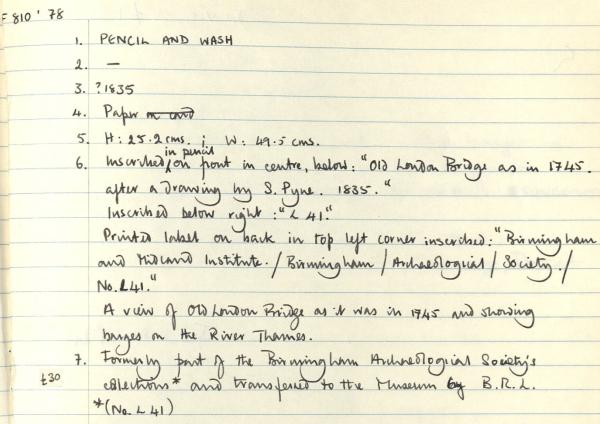 F 810 '78
1. PENCIL AND WASH
2. —
3. ?1835
4. Paper on card
5. H: 25.2 cms. ; W: 49.5 cms.
6. Inscribed, in pencil on front in centre, below: "Old London Bridge as in 1745.
after a Drawing by S. Pyne. 1835."
Inscribed below right: "L 41."
Printed label on back in top left corner inscribed: "Birmingham
and Midland Institute. / Birmingham / Archaeological / Society. /
No. L41."
A view of Old London Bridge as it was in 1745 and showing
barges on the River Thames.
7. Formerly part of the Birmingham Archaeological Society's
£30 collections* and transferred to the Museum by B.R.L.
*(No. L 41)